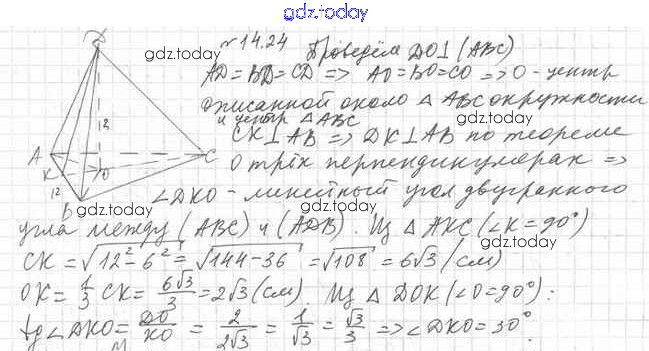 gdz.today
№14.24 Проведём DO⊥(ABC)
AD=BD=CD => AO=BO=CO => O - центр
описанной около △ ABC окружности
и центр △ABC
CK⊥AB => DK⊥AB по теореме
о трёх перпендикулярах =>
∠DKO - линейный угол двугранного
угла между (ABC) и (ADB). Из △ AKC (∠K=90°)
CK = √12²-6² = √144-36 = √108 = 6√3 (см)
OK = 1/3 CK = 6√3/3 = 2√3 (см). Из △ DOK (∠O=90°):
tg ∠DKO = DO/KO = 2/2√3 = 1/√3 = √3/3 => ∠DKO = 30°.
D
2
A
K
O
C
12
B
gdz.today
gdz.today
gdz.today
gdz.today
gdz.today
gdz.today
gdz.today
gdz.today